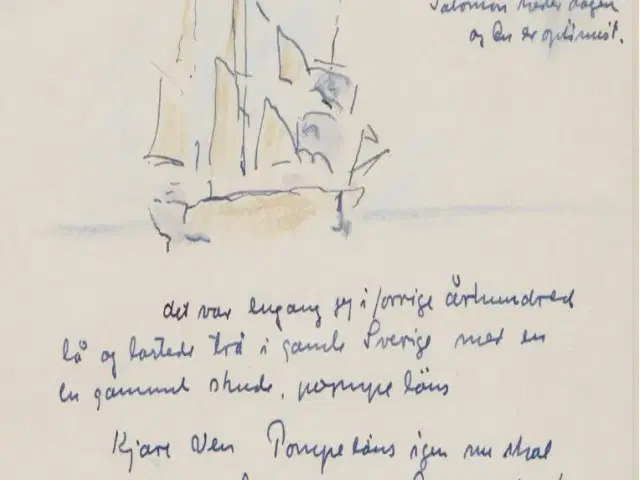 Salomon
og du er optimist.
det var engang jeg i forrige århundred
lå og lastede trä i gamle Sverige med en
en gammel skude, pompe läns
Kjäre Ven Pompe läns igen nu skal